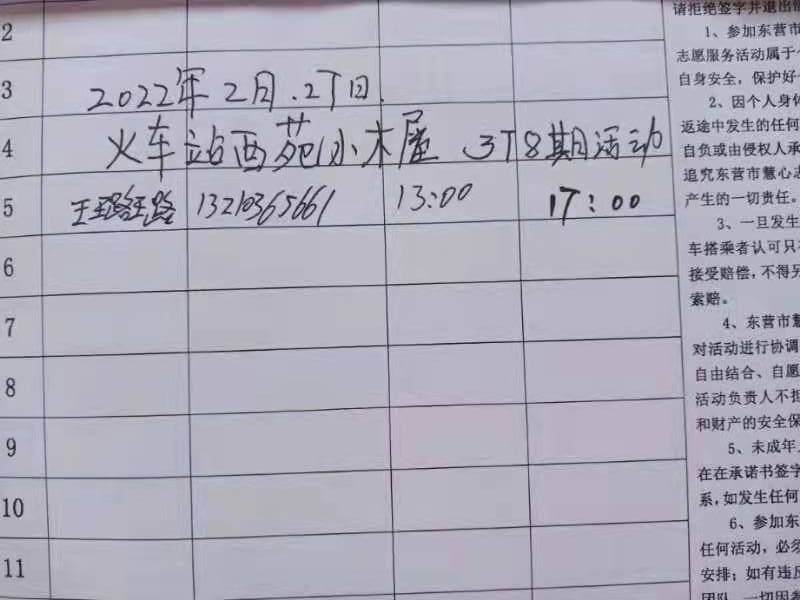 2
3 2022年2月.27日.
4 火车站西苑小木屋 378期活动
5 王路 13210365661 13:00 17:00
6
7
8
9
10
11
请拒绝签字并退出
1、参加东营市
志愿服务活动属于
自身安全，保护好
2、因个人身
返途中发生的任何
自负或由侵权人承
追究东营市慧心志
产生的一切责任。
3、一旦发生
车搭乘者认可只
接受赔偿，不得另
索赔。
4、东营市慧
对活动进行协调
自由结合、自愿
活动负责人不担
和财产的安全保
5、未成年
在在承诺书签字
系，如发生任何
6、参加东
任何活动，必须
安排；如有违反
团队，一切因参